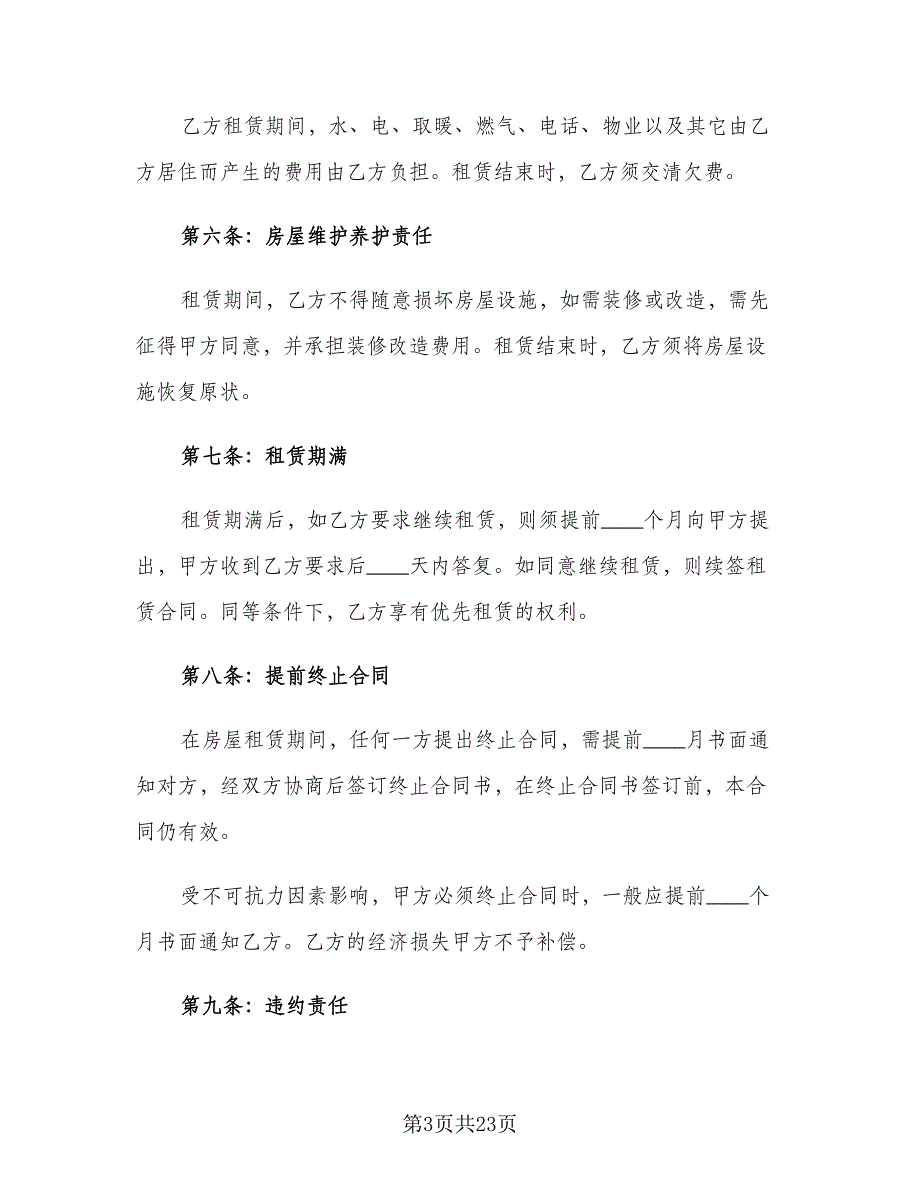 乙方租赁期间，水、电、取暖、燃气、电话、物业以及其它由乙
方居住而产生的费用由乙方负担。租赁结束时，乙方须交清欠费。
第六条：房屋维护养护责任
租赁期间，乙方不得随意损坏房屋设施，如需装修或改造，需先
征得甲方同意，并承担装修改造费用。租赁结束时，乙方须将房屋设
施恢复原状。
第七条：租赁期满
租赁期满后，如乙方要求继续租赁，则须提前____个月向甲方提
出，甲方收到乙方要求后____天内答复。如同意继续租赁，则续签租
赁合同。同等条件下，乙方享有优先租赁的权利。
第八条：提前终止合同
在房屋租赁期间，任何一方提出终止合同，需提前____月书面通
知对方，经双方协商后签订终止合同书，在终止合同书签订前，本合
同仍有效。
受不可抗力因素影响，甲方必须终止合同时，一般应提前____个
月书面通知乙方。乙方的经济损失甲方不予补偿。
第九条：违约责任
第3页共23页